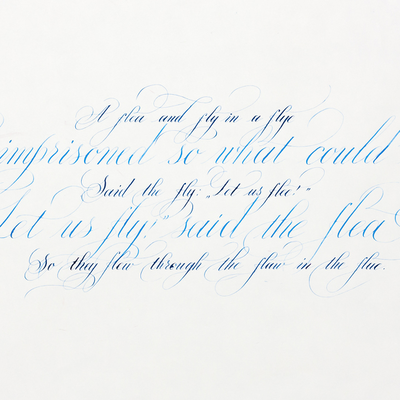 A flea and fly in a flye
imprisoned so what could
Said the fly: „Let us flee!"
Let us fly!" said the flea
So they flew through the flaw in the flue.